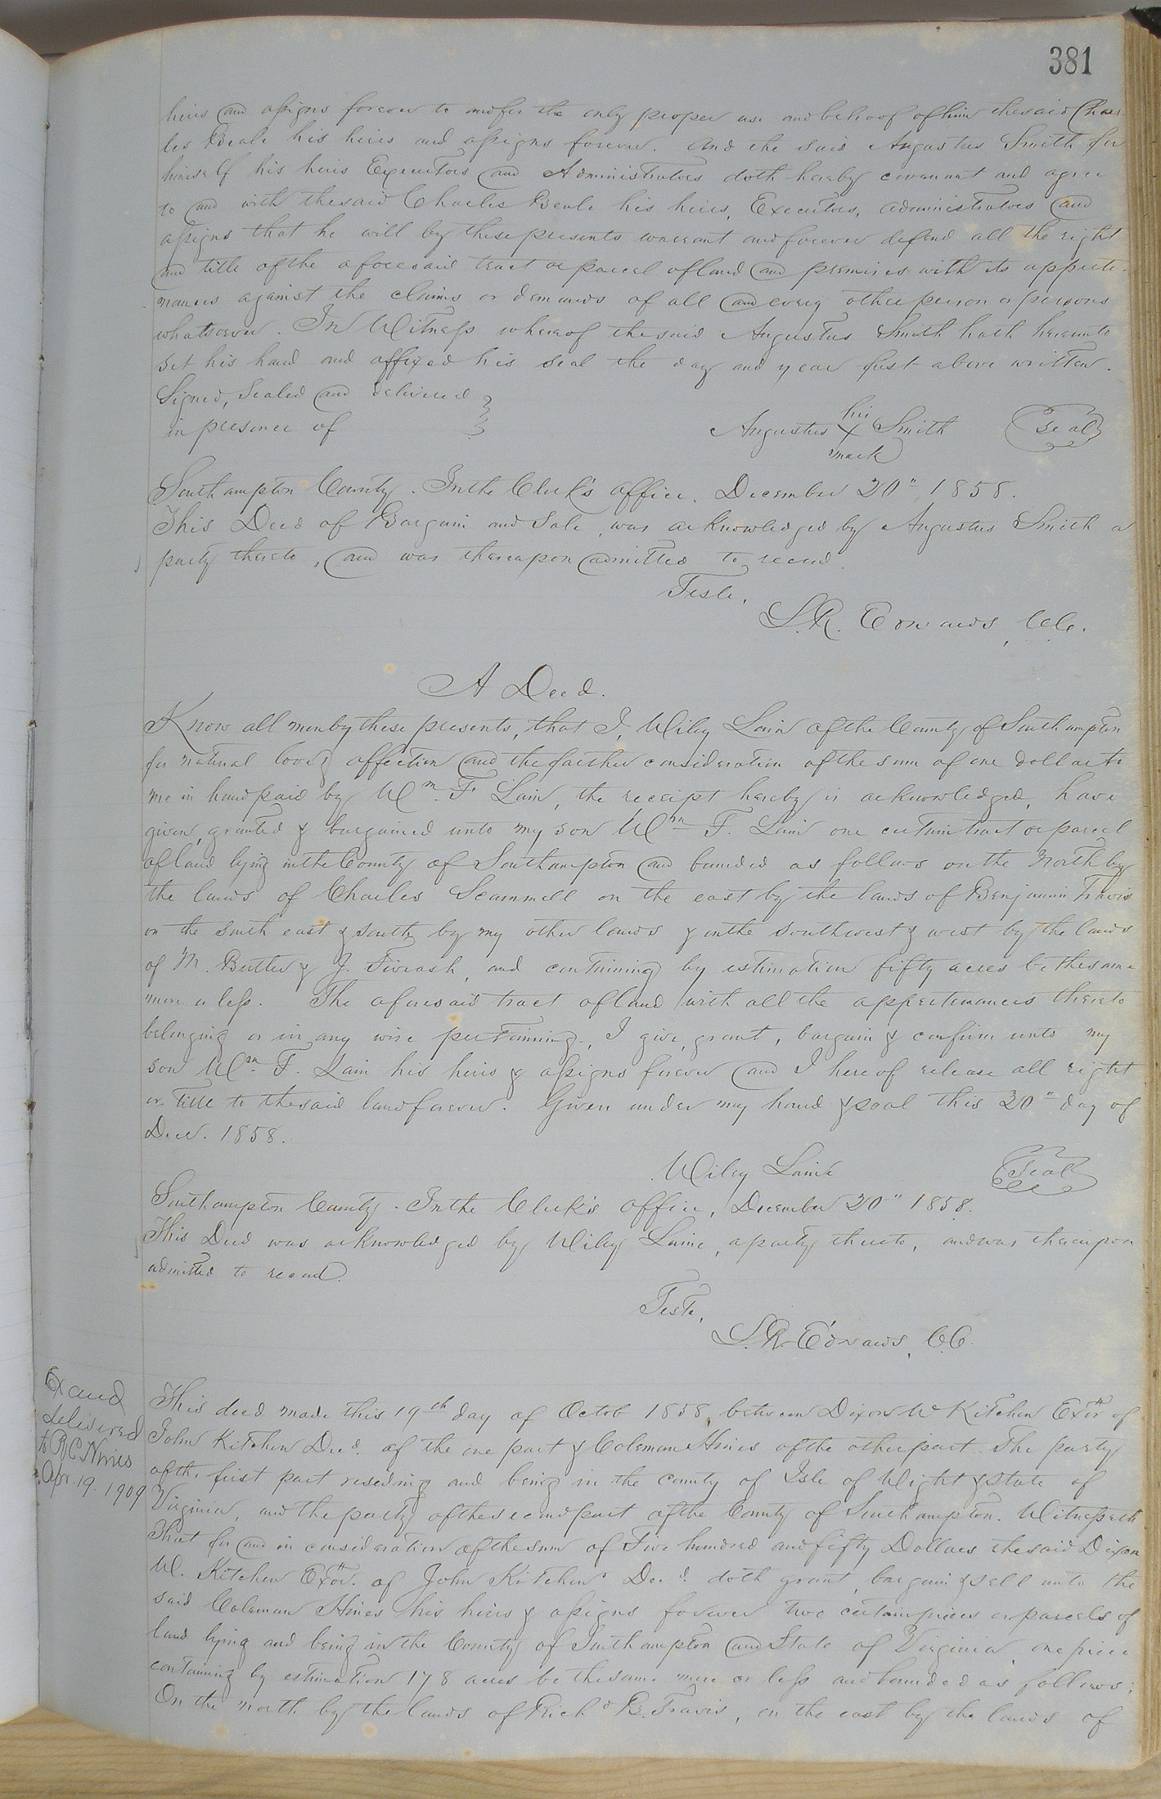 381
heirs and assigns forever to and for the only proper use and behoof of him the said Char
les Beale his heirs and assigns forever. And the said Augustus Smith for
himself his heirs Executors and Administrators doth hereby covenant and agree
to and with the said Charles Beale his heirs, Executors, administrators and
assigns that he will by these presents warrant and forever defend all the right
and title of the aforesaid tract or parcel of land and premises with its appurte-
nances against the claims or demands of all and every other person or persons
whatsoever. In Witness whereof the said Augustus Smith hath hereunto
set his hand and affixed his seal the day and year first above written.
Signed, Sealed and delivered
in presence of
Augustus his X mark Smith Seal
Southampton County. In the Clerk's office, December 20" 1858.
This Deed of Bargain and Sale, was acknowledged by Augustus Smith a
party thereto, and was thereupon admitted to record.
Teste,
L.R. Edwards, C.C.
A Deed.
Know all men by these presents, that I, Wiley Lain of the County of Southampton
for natural love & affection and the farther consideration of the sum of one dollar to
me in hand paid by Wm. F. Lain, the receipt hereby is acknowledged, have
given, granted & bargained unto my son Wm. F. Lain one certain tract or parcel
of land lying in the County of Southampton and bounded as follows on the North by
the lands of Charles Scammell on the east by the lands of Benjamin Travis
on the south east & south by my other lands & on the southwest & west by the lands
of M. Butler & J. and containing by estimation fifty acres be the same
more or less. The aforesaid tract of land with all the appurtenances thereto
belonging or in any wise pertaining, I give, grant, bargain & confirm unto my
son Wm. F. Lain his heirs & assigns forever and I hereof release all right
or title to the said land forever. Given under my hand & seal this 20" day of
Decr. 1858.
Wiley Laine Seal
Southampton County. In the Clerk's office, December 20" 1858.
This Deed was acknowledged by Wiley Laine, a party thereto, and was thereupon
admitted to record.
Teste,
L.R. Edwards, C.C.
Ex and
delivered
to R C Hines
Apr. 19. 1909
This deed made this 19th day of Octob 1858, between Dixon W Kitchen Exor of
John Kitchen Decd. of the one part & Coleman Hines of the other part. The party
of the first part reseding and being in the county of Isle of Wight & State of
Virginia, and the party of the second part of the County of Southampton. Witnesseth
That for and in consideration of the sum of Five hundred and fifty Dollars the said Dixon
W. Kitchen Exor. of John Kitchen Decd. doth grant, bargain & sell unto the
said Coleman Hines his heirs & assigns forever two certain pieces or parcels of
land lying and being in the County of Southampton and State of Virginia, one piece
containing by estimation 178 acres be the same more or less and bounded as follows;
On the north by the lands of Richd B. Travis, on the east by the lands of